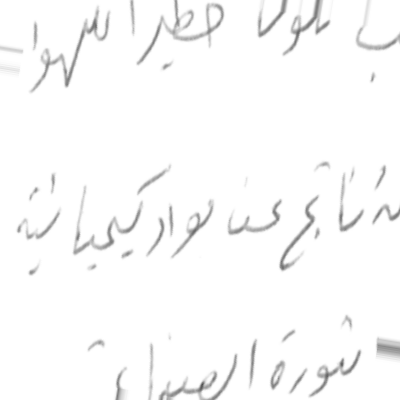 تلوثا خطيرا للهوا
ناتج عن مواد كيميائية
ثورة الصناع